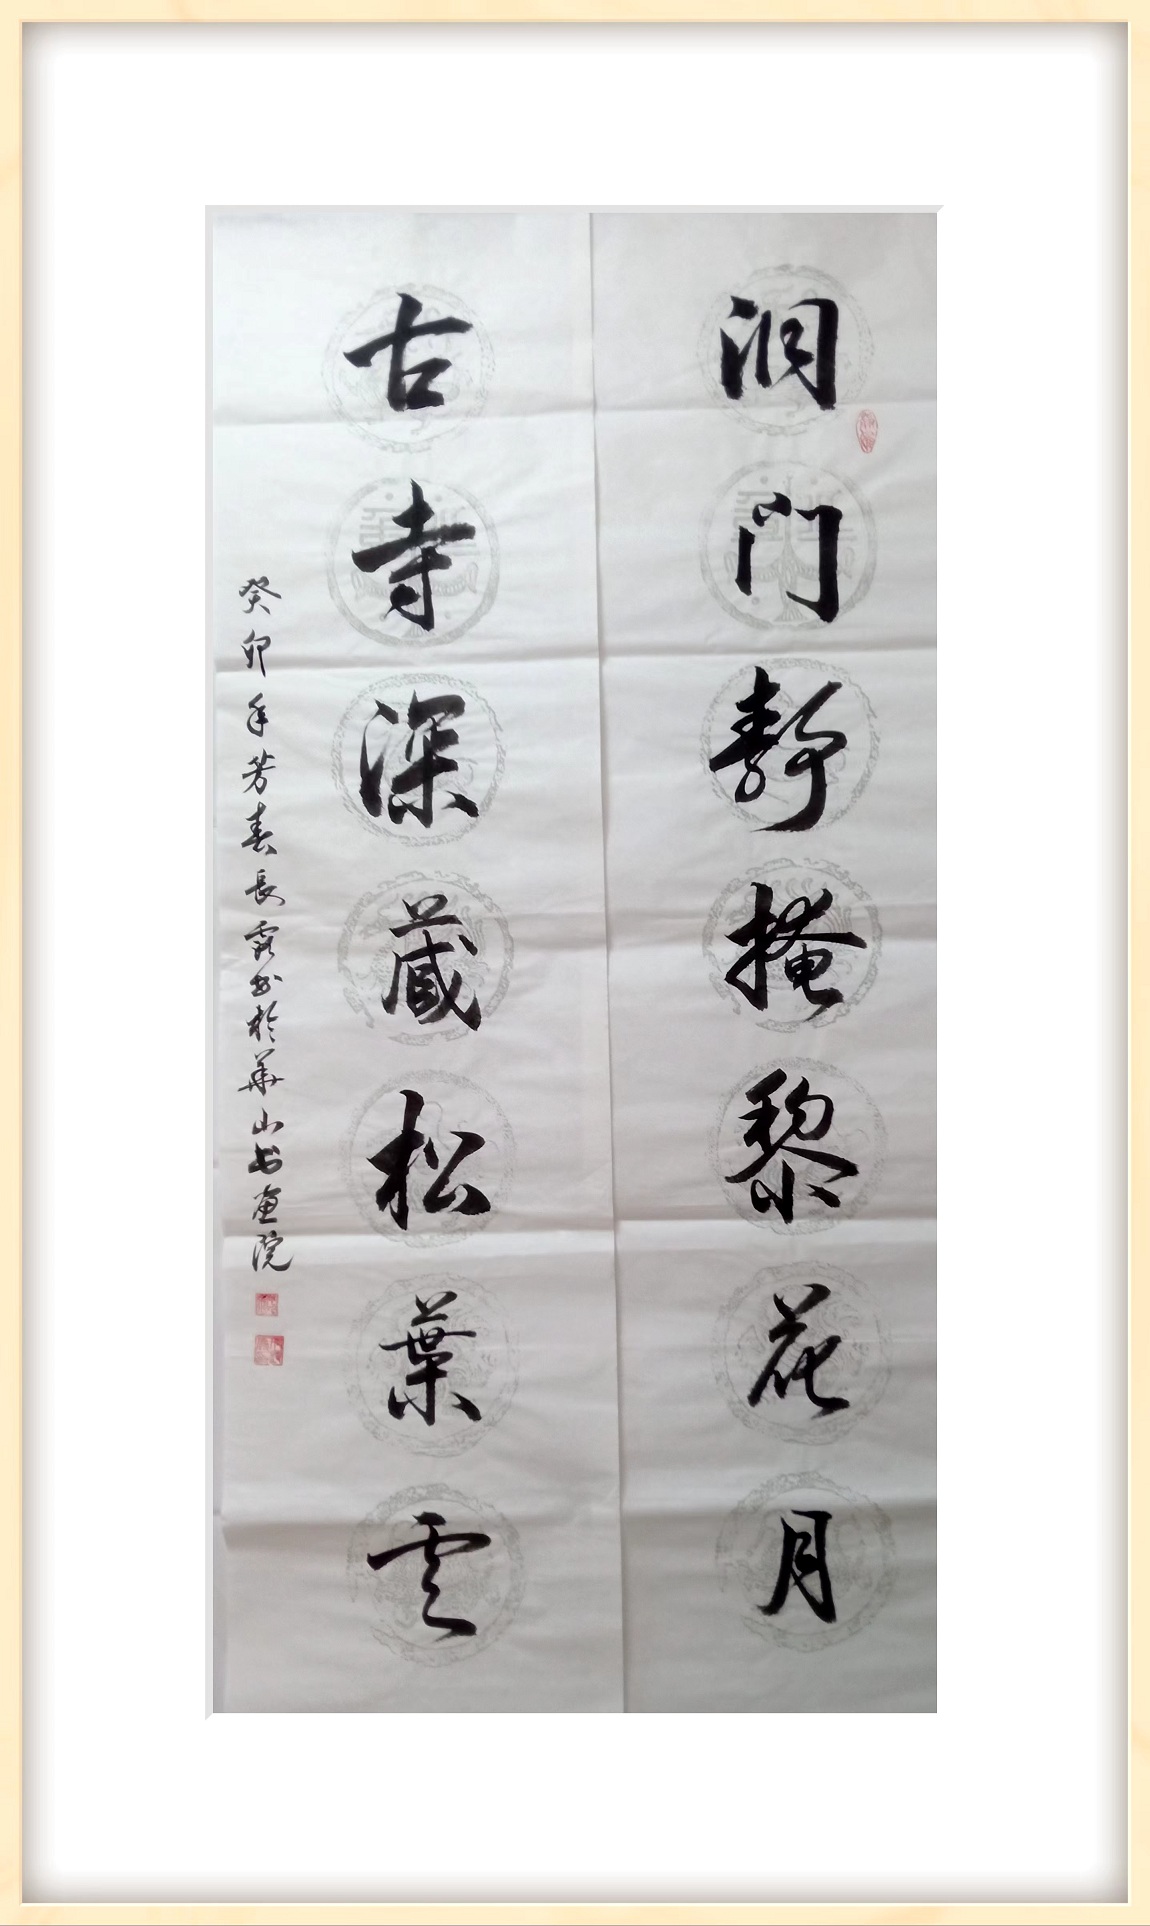 洞门静掩黎花月
古寺深蔵松葉雲
癸卯年芳春長霞书於華山书畫院